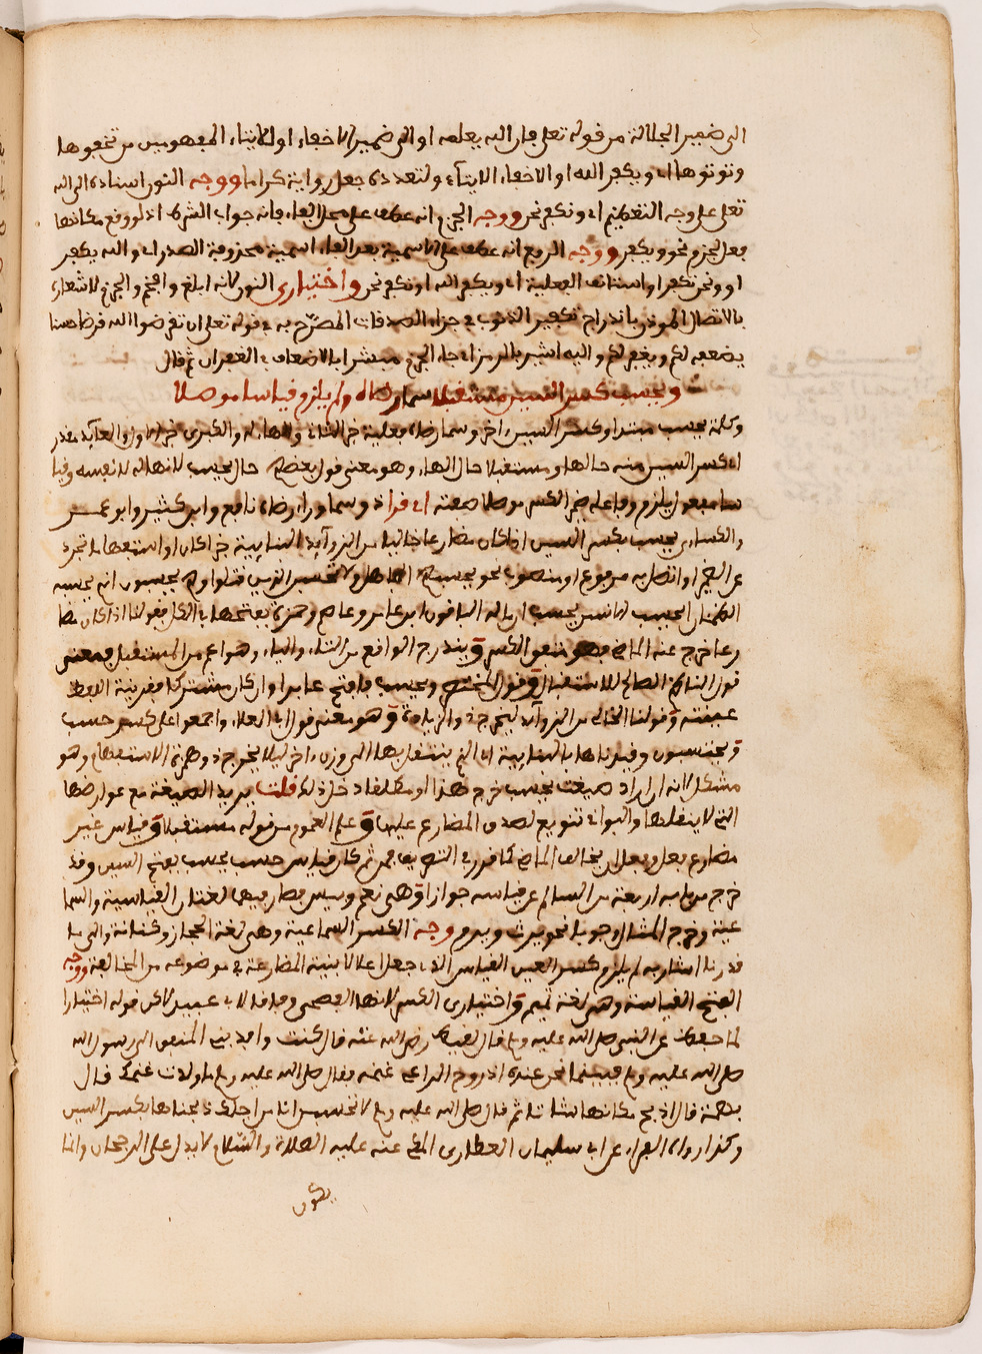 الى ضمير الجلالة من قوله تعلى فان الله يعلمه او الى ضمير الاخفاء او الايتاء المفهومين من تخفوها
وتوتوها اي ويكفر الله او الاخفاء الايتاء ولتعدده جعل رواية كراما ووجه النون اسناده الى الله
تعلى على وجه التعظيم اي ونكفر نحن ووجه الجزم انه عطف على محل الفاء فانه جواب الشرط اذ لو وقع مكانها
فعل لجزم نحو ويكفر ووجه الرفع انه عطف على الاسمية بعد الفاء اسمية محذوفة الصدر اي والله يكفر
او ونحن نكفر او استئناف الفعلية اي ويكفر الله او نكفر نحن واختياري النون لانه ابلغ وافخم والجزم لاشعاره
بالاتصال الموذن باندراج تكفير الذنوب في جزاء الصدقات المصرح به في قوله تعلى ان تقرضوا الله قرضا حسنا
يضعفه لكم ويغفر لكم واليه اشير بالرمز اي جاء الجزم مبشرا بالاضعاف في الغفران ثم قال
ويحسب كسر السين مستقبلا سما رضاه ولم يلزم قياسا موصلا
وكلمة يحسب مبتدا وكسر السين اخر وسما رضاه فعلية خبر الثاني والهاء له والكبرى خبر الاول والعائد مقدر
اي كسر السين منه حالها ومستقبلا حال الهاء وهو معنى قول بعضهم حال يحسب لانها له لا نفسه وقيا
سا مفعول يلزم وفاعله ضمير الكسر موصلا صفته اي قرا ذو سما وراء رضاه نافع وابن كثير وابو عمرو
والكساءي يحسب بكسر السين اذا كان مضارعا خاليا من الزوآيد البنايية خبرا كان او استفهاما تجرد
عن الضمير او اتصل به مرفوع او منصوب نحو يحسبهم الجاهل ولا تحسبن الذين قتلوا وهم يحسبون انهم يحسبه
الظمئان ايحسب الانسن يحسب ان ماله الباقون ابن عامر وعاصم وحمزة بفتحها في الكل فقولنا اذا كان مضا
رعا خرج عنه الماضي فهو متفق الكسر ويندرج الواقع من التاء والياء وهو اعم من المستقبل فمعنى
قول الناظم الصالح للاستقبال وقول المختصر ويحسب فافتح عامرا وان كان مشتركا فقرينة اللفظ
عينته وقولنا الخالي من الزوآيد ليخرج ذو الزيادة وهو معنى قول ابي العلاء واجمعوا على كسر حسب
ويحتسبون وقيدناها بالبنايية اي التي ينتقل بها الى وزن اخر ليلا يخرج ذو همزة الاستفهام وهو
مشكل لانه ان اراد صيغت يحسب خرج هذا او مطلقا دخل ذلك قلت يريد الصيغة مع عوارضها
التي لا ينقلها والبواقي تنويع لصدق المضارع عليها وعلم العموم من قوله مستقبلا وقياس غير
مضارع فعل ويفعل ان يخالف الماضي كما قرر في التصريف فمن ثم كان قياس حسب يحسب بفتح السين وقد
خرج من بابه اربعة من السالم عن قياسه جوازا وهي نعم ويبس فصار فيها لغتان القياسية والسما
عية وخرج المثال وجوبا نحو يرث ويرم وجه الكسر السماعية وهي لغة الحجاز وكنانة والى ما
قدرنا اشار به لم يلزم وكسر العين القياس الذي جعل اعلا لابنية المضارعة في موضوعه من المخالفة ووجه
الفتح القياسة وهي لغة تميم واختياري الكسر لانها الفصحى وفاقا لابي عبيد لاكن قوله اختيارا
لما حفظت عن النبي صلى الله عليه وسلم قال لقيط رضي الله عنه قال كنت وافد بني المنتفق الى رسول الله
صلى الله عليه وسلم فبينما نحن عنده اذ روح الراعي غنمه فقال صلى الله عليه وسلم ما ولدت غنمك قال
بهمة قال اذبح مكانها شاة ثم قال صلى الله عليه وسلم لا تحسبن انا من اجلك ذبحناها بكسر السين
وكذا رواه الفراء عن ابي سليمان العطاردي المحكي عنه عليه الصلاة والسلام لا يدل على الرجحان وانما
يكون